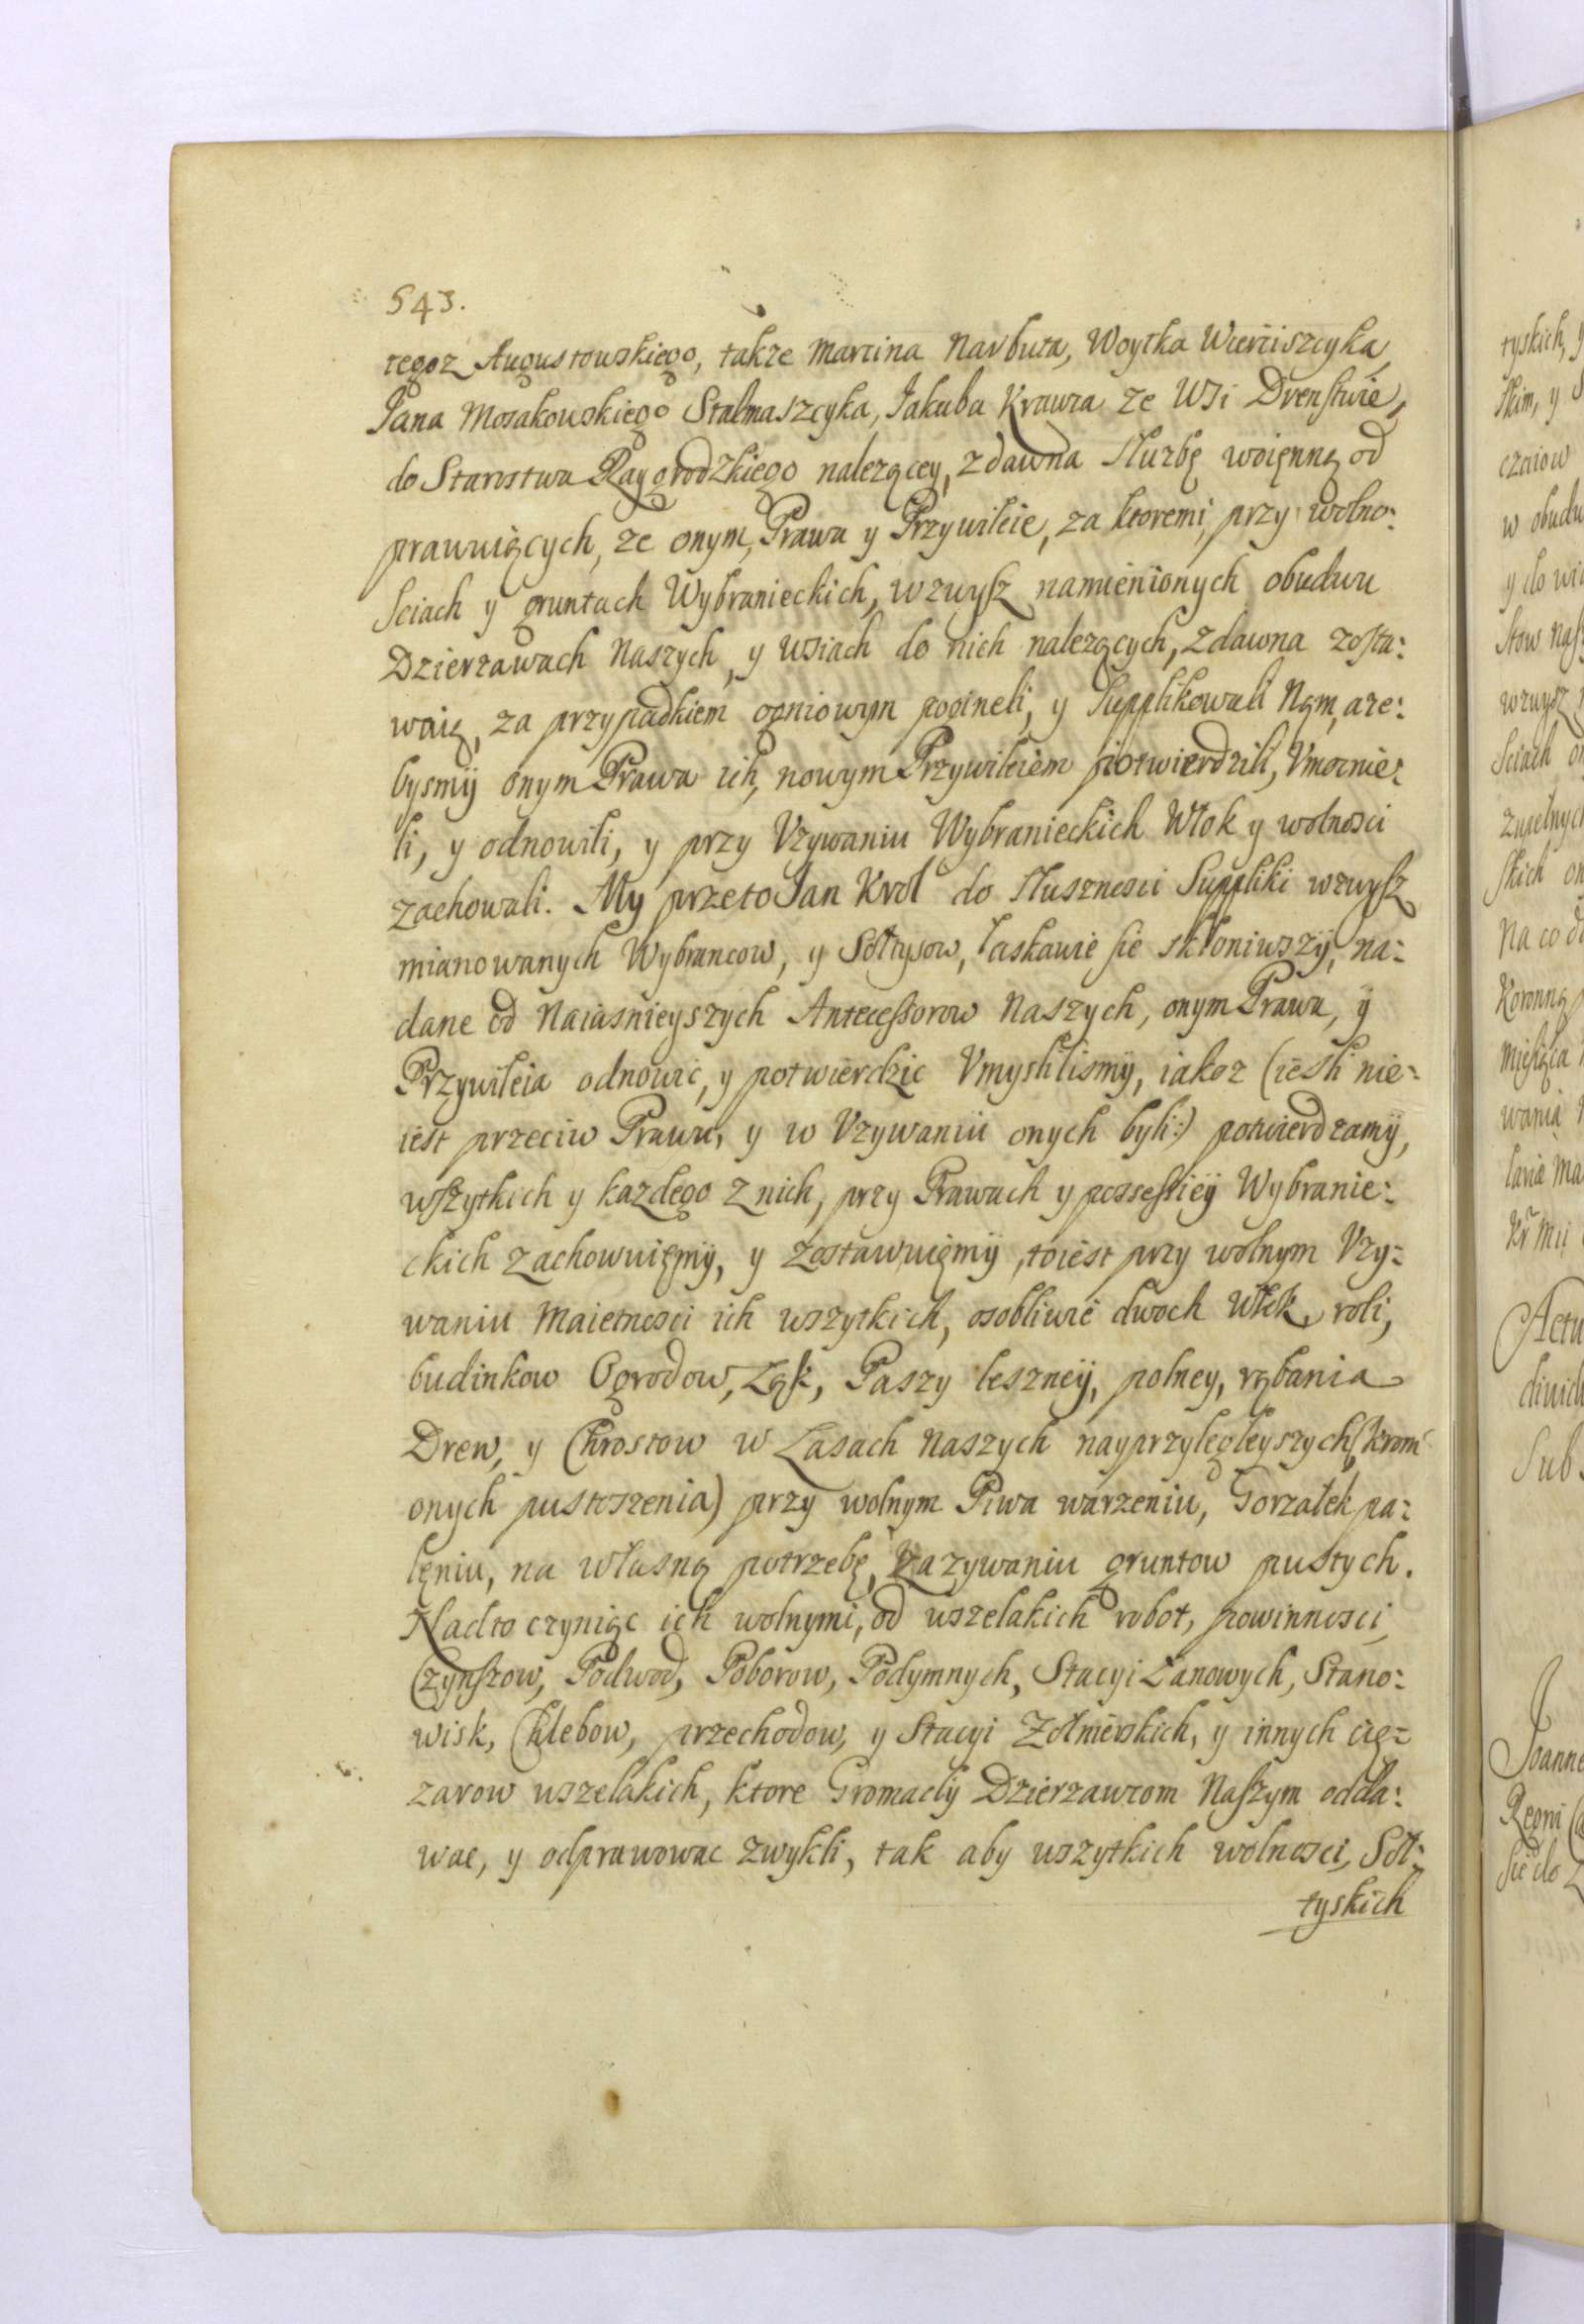 543.
tegoz Augustowskiego, takze Marcina Narbuta, Woytka Wierciszcyka,
Jana Mosakowskiego Stalmaszcyka, Jakuba Krawca ze Wsi Drenstwie,
do Starostwa Raygrodzkiego nalezącey, zdawna Służbę woięnną od
prawuiących, ze onym, Prawa y Przywileie, za ktoremi, przy wolno:
sciach y gruntach Wybranieckich, wzwysz namienionych obudwu
Dzierzawach Naszych, y wsiach do nich nalezących, zdawna zosta:
waią, za przypadkiem ogniowym pogineli, y Supplikowali Nąm, aze:
bysmÿ onym Prawa ich, nowym Przywileiem potwierdzili, Vmocnie:
li, y odnowili, y przy Vzywaniu Wybranieckich Włok y wolnosci
zachowali. My przeto Jan Krol do Słusznosci Suppliki wzwysz
mianowanych Wybrancow, y Sołtysow, łaskawie sie skłoniwszÿ, na:
dane od Naiasnieyszych Antecessorow Naszych, onym Prawa, ÿ
Przywileia odnowic, y potwierdzic Vmyslilismÿ, iakoz (iesli nie:
iest przeciw Prawu, y w Vzywaniu onych byli:) potwierdzamÿ,
wszytkich y kazdego z nich, przy Prawach y possessiÿ Wybranie:
ckich zachowuięmÿ, y zostawuięmÿ, toiest przy wolnym Vzy:
waniu Maietnosci ich wszytkich, osobliwie dwoch Włok, roli,
budinkow Ogrodow, Ląk, Paszy leszneÿ, polney, rąbania
Drew, y Chrostow w Lasach Naszych nayprzyległeyszych, (krom
onych pustoszenia) przy wolnym Piwa warzeniu, Gorzałek pa:
lęniu, na własną potrzebę, zazywaniu gruntow pustych.
Nadto czyniąc ich wolnymi, od wszelakich robot, powinnosci,
Czynszow, Podwod, Poborow, Podymnych, Stacyi Lanowych, Stano:
wisk, Chlebow, przechodow, y Stacyi Zołnierskich, y innych cię:
zarow wszelakich, ktore Gromadÿ Dzierzawcom Naszym odda:
wac, y odprawowac zwykli, tak aby wszytkich wolnosci, Soł:
tyskich